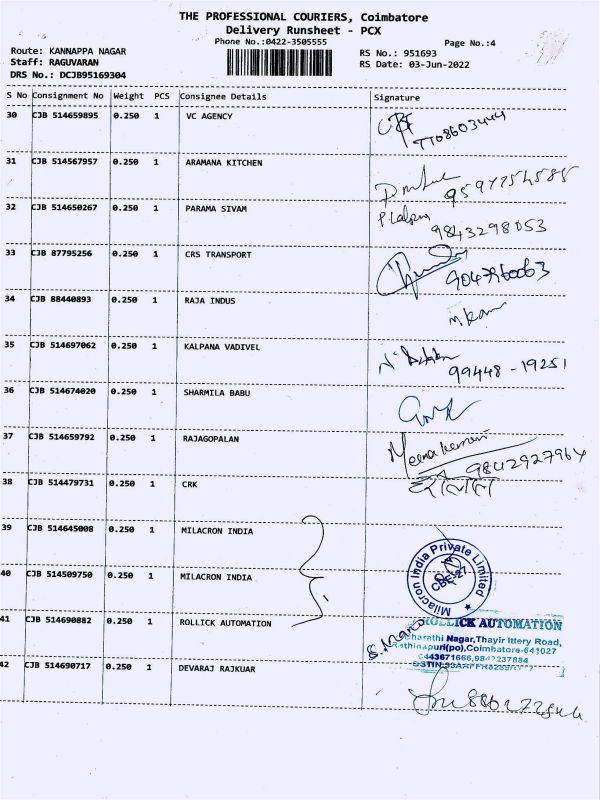 THE PROFESSIONAL COURIERS, Coimbatore
Delivery Runsheet - PCX
Phone No.:0422-3505555
Page No.:4
Route: KANNAPPA NAGAR
RS No.: 951693
Staff: RAGUVARAN
RS Date: 03-Jun-2022
DRS No.: DCJB95169304
S No Consignment No Weight PCS Consignee Details Signature
30 CJB 514659895 0.250 1 VC AGENCY
7708603444
31 CJB 514567957 0.250 1 ARAMANA KITCHEN
9597754585
32 CJB 514650267 0.250 1 PARAMA SIVAM
9843298053
33 CJB 87795256 0.250 1 CRS TRANSPORT
9047960063
34 CJB 88440893 0.250 1 RAJA INDUS
35 CJB 514697062 0.250 1 KALPANA VADIVEL
99448-19251
36 CJB 514674020 0.250 1 SHARMILA BABU
37 CJB 514659792 0.250 1 RAJAGOPALAN
Meenakumari
9842927964
38 CJB 514479731 0.250 1 CRK
39 CJB 514645008 0.250 1 MILACRON INDIA
Milacron India Private Limited
CBE-27
40 CJB 514509750 0.250 1 MILACRON INDIA
41 CJB 514690882 0.250 1 ROLLICK AUTOMATION
ROLLICK AUTOMATION
Bharathi Nagar,Thayir Ittery Road,
Rathinapuri(po),Coimbatore-641027
42 CJB 514690717 0.250 1 DEVARAJ RAJKUAR